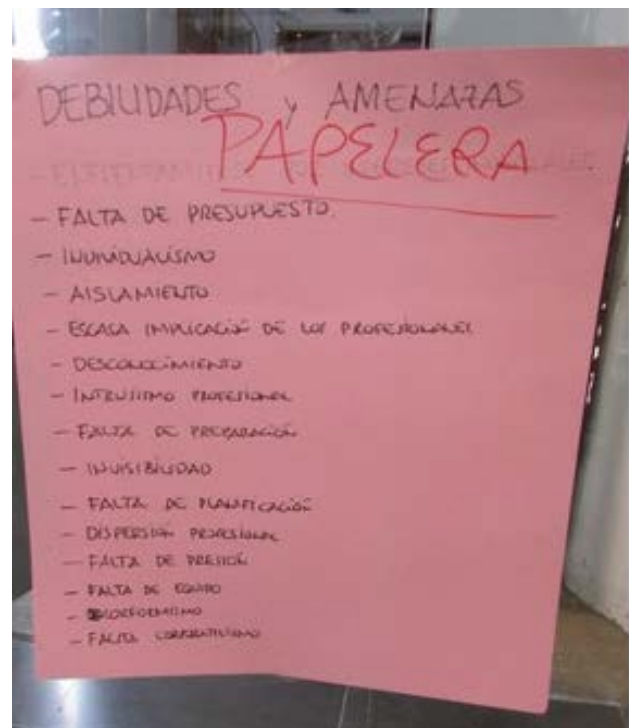 DEBILIDADES y AMENAZAS
PAPELERA
- FALTA DE PRESUPUESTO.
- INDIVIDUALISMO
- AISLAMIENTO
- ESCASA IMPLICACIÓN DE LOS PROFESIONALES
- DESCONOCIMIENTO
- INTRUSISMO PROFESIONAL
- FALTA DE PREPARACIÓN
- INVISIBILIDAD
- FALTA DE PLANIFICACIÓN
- DISPERSIÓN PROFESIONAL
- FALTA DE PRESIÓN
- FALTA DE EQUIPO
- CONFORMISMO
- FALTA CORPORATIVISMO